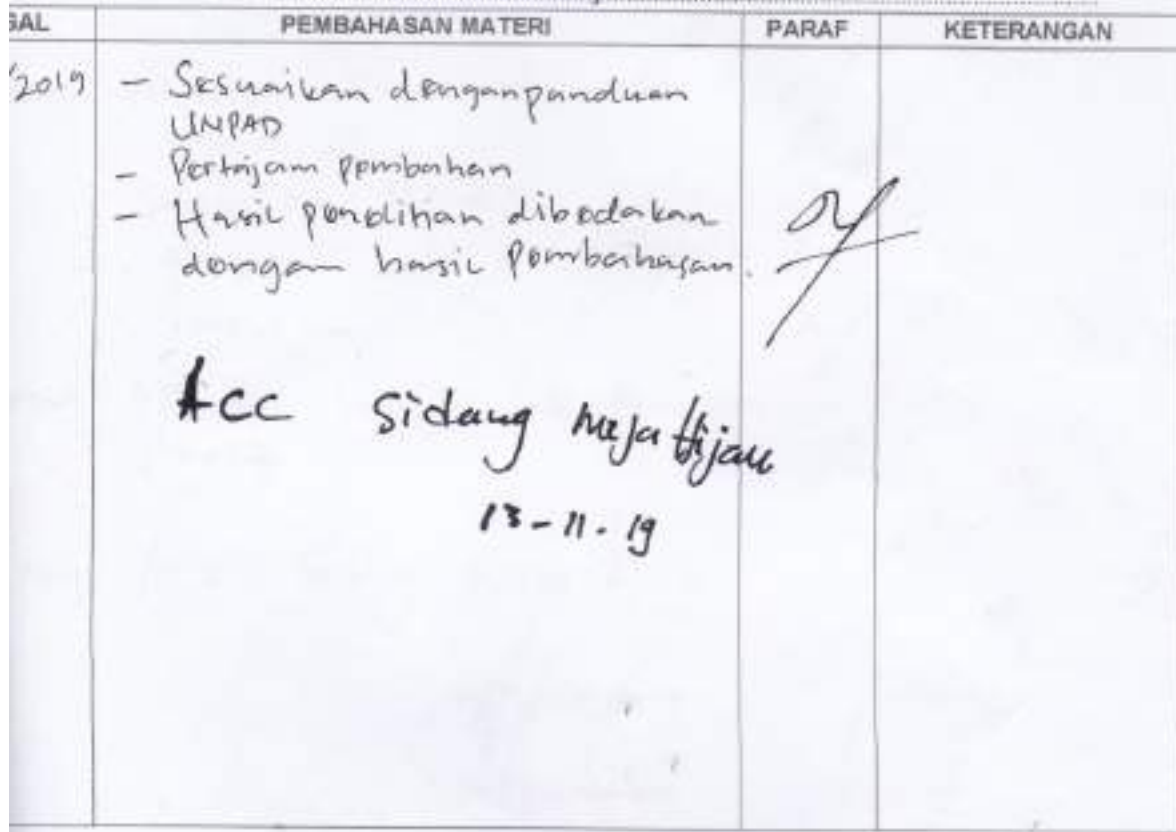 GAL PEMBAHASAN MATERI PARAF KETERANGAN
/2019 - Sesuaikan dengan panduan
UNPAD
- Pertajam pembahan
- Hasil penelitian dibedakan
dengan hasil pembahasan.
Acc Sidang Meja Hijau
13-11-19